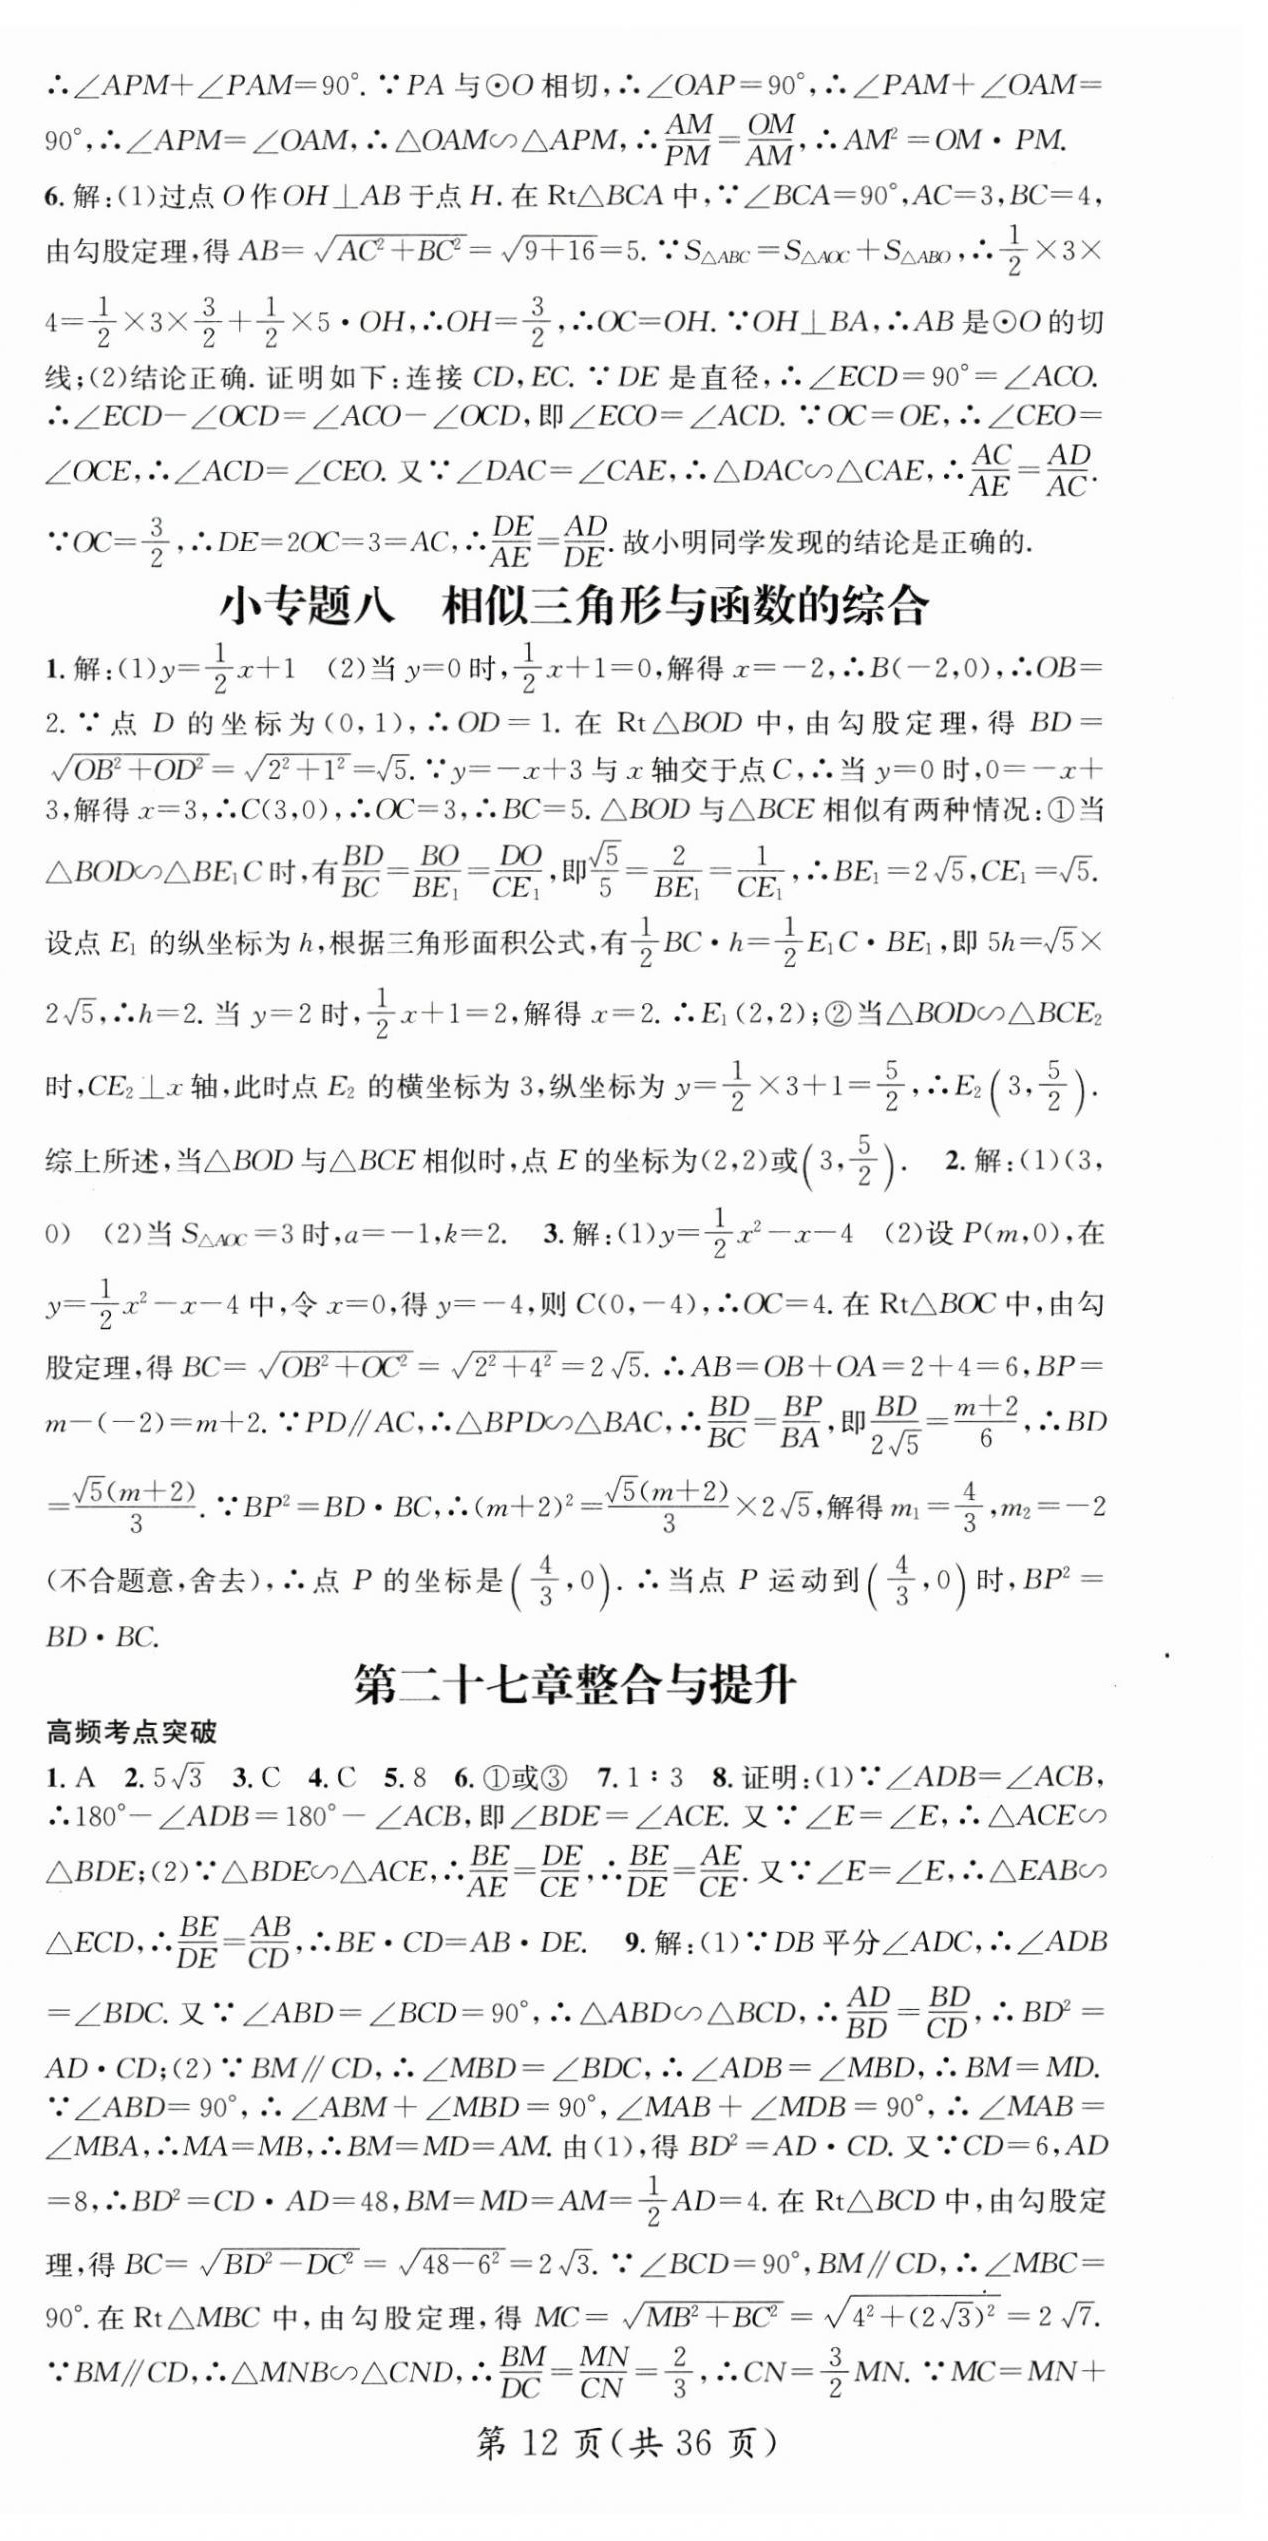 ∴∠APM+∠PAM=90°.∵PA与⊙O相切,∴∠OAP=90°,∴∠PAM+∠OAM=
90°,∴∠APM=∠OAM,∴△OAM∽△APM,∴AM/PM=OM/AM,∴AM²=OM·PM.
6.解:(1)过点O作OH⊥AB于点H.在Rt△BCA中,∵∠BCA=90°,AC=3,BC=4,
由勾股定理,得AB=√(AC²+BC²)=√(9+16)=5.∵S△ABC=S△AOC+S△ABO,∴1/2×3×
4=1/2×3×3/2+1/2×5·OH,∴OH=3/2,∴OC=OH.∵OH⊥BA,∴AB是⊙O的切
线;(2)结论正确.证明如下:连接CD,EC.∵DE是直径,∴∠ECD=90°=∠ACO.
∴∠ECD-∠OCD=∠ACO-∠OCD,即∠ECO=∠ACD.∵OC=OE,∴∠CEO=
∠OCE,∴∠ACD=∠CEO.又∵∠DAC=∠CAE,∴△DAC∽△CAE,∴AC/AE=AD/AC.
∵OC=3/2,∴DE=2OC=3=AC,∴DE/AE=AD/DE.故小明同学发现的结论是正确的.
小专题八 相似三角形与函数的综合
1.解:(1)y=1/2x+1 (2)当y=0时,1/2x+1=0,解得x=-2,∴B(-2,0),∴OB=
2.∵点D的坐标为(0,1),∴OD=1.在Rt△BOD中,由勾股定理,得BD=
√(OB²+OD²)=√(2²+1²)=√5.∵y=-x+3与x轴交于点C,∴当y=0时,0=-x+
3,解得x=3,∴C(3,0),∴OC=3,∴BC=5.△BOD与△BCE相似有两种情况:①当
△BOD∽△BE₁C时,有BD/BC=BO/BE₁=DO/CE₁,即√5/5=2/BE₁=1/CE₁,∴BE₁=2√5,CE₁=√5.
设点E₁的纵坐标为h,根据三角形面积公式,有1/2BC·h=1/2E₁C·BE₁,即5h=√5×
2√5,∴h=2.当y=2时,1/2x+1=2,解得x=2.∴E₁(2,2);②当△BOD∽△BCE₂
时,CE₂⊥x轴,此时点E₂的横坐标为3,纵坐标为y=1/2×3+1=5/2,∴E₂(3,5/2).
综上所述,当△BOD与△BCE相似时,点E的坐标为(2,2)或(3,5/2). 2.解:(1)(3,
0) (2)当S△AOC=3时,a=-1,k=2. 3.解:(1)y=1/2x²-x-4 (2)设P(m,0),在
y=1/2x²-x-4中,令x=0,得y=-4,则C(0,-4),∴OC=4.在Rt△BOC中,由勾
股定理,得BC=√(OB²+OC²)=√(2²+4²)=2√5.∴AB=OB+OA=2+4=6,BP=
m-(-2)=m+2.∵PD∥AC,∴△BPD∽△BAC,∴BD/BC=BP/BA,即BD/2√5=(m+2)/6,∴BD
=√5(m+2)/3.∵BP²=BD·BC,∴(m+2)²=√5(m+2)/3×2√5,解得m₁=4/3,m₂=-2
(不合题意,舍去),∴点P的坐标是(4/3,0).∴当点P运动到(4/3,0)时,BP²=
BD·BC.
第二十七章整合与提升
高频考点突破
1.A 2.5√3 3.C 4.C 5.8 6.①或③ 7.1∶3 8.证明:(1)∵∠ADB=∠ACB,
∴180°-∠ADB=180°-∠ACB,即∠BDE=∠ACE.又∵∠E=∠E,∴△ACE∽
△BDE;(2)∵△BDE∽△ACE,∴BE/AE=DE/CE,∴BE/DE=AE/CE.又∵∠E=∠E,∴△EAB∽
△ECD,∴BE/DE=AB/CD,∴BE·CD=AB·DE. 9.解:(1)∵DB平分∠ADC,∴∠ADB
=∠BDC.又∵∠ABD=∠BCD=90°,∴△ABD∽△BCD,∴AD/BD=BD/CD,∴BD²=
AD·CD;(2)∵BM∥CD,∴∠MBD=∠BDC,∴∠ADB=∠MBD,∴BM=MD.
∵∠ABD=90°,∴∠ABM+∠MBD=90°,∠MAB+∠MDB=90°,∴∠MAB=
∠MBA,∴MA=MB,∴BM=MD=AM.由(1),得BD²=AD·CD.又∵CD=6,AD
=8,∴BD²=CD·AD=48,BM=MD=AM=1/2AD=4.在Rt△BCD中,由勾股定
理,得BC=√(BD²-DC²)=√(48-6²)=2√3.∵∠BCD=90°,BM∥CD,∴∠MBC=
90°.在Rt△MBC中,由勾股定理,得MC=√(MB²+BC²)=√(4²+(2√3)²)=2√7.
∵BM∥CD,∴△MNB∽△CND,∴BM/DC=MN/CN=2/3,∴CN=3/2MN.∵MC=MN+
第 12 页(共 36 页)